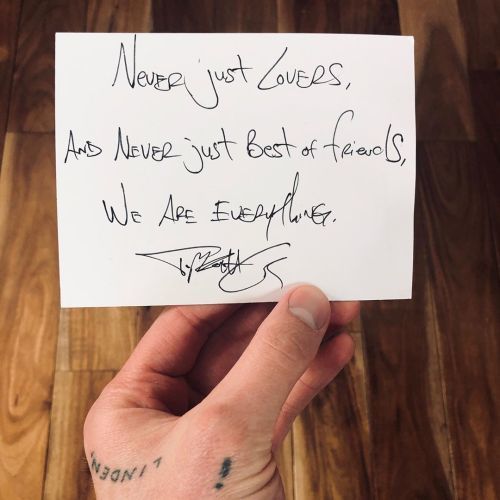 Never just Lovers,
And Never just Best of friends,
We Are Everything.
LINDEN,